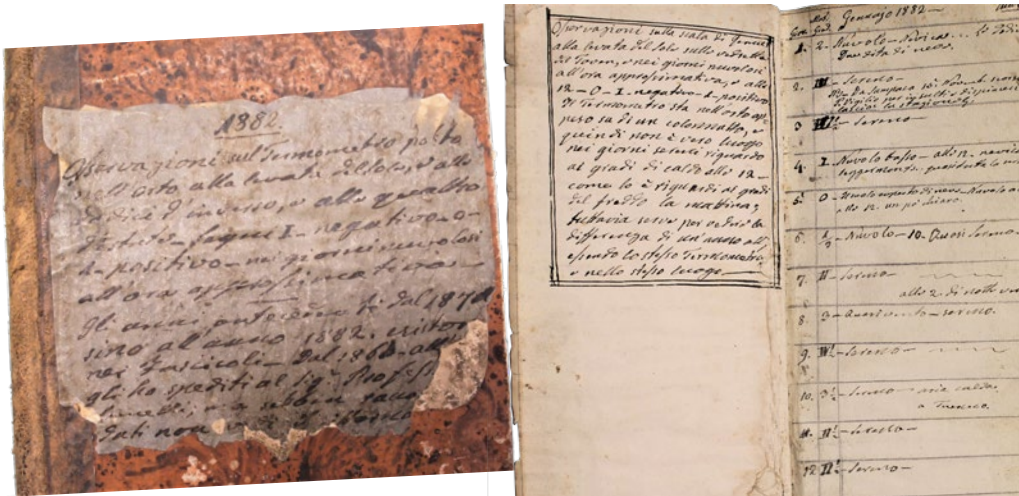 1882.
Osservazioni sul Termometro posto
nell'orto alla levata del sole, e alle
dodici d'inverso, e alle quattro
d'estate - segue I - negativo - 0 -
1 - positivo - nei giorni nuvolosi
all'ora approssimativa -
Gli anni anteriori di dal 1874
sino all'anno 1882. esistono
nei Fascicoli - dal 1868 - al
gli ho spediti al Sig. Prof.
ma sebben
dati non
Osservazioni sulla scala di
alla levata del sole sulle vedrette
del e nei giorni nuvolosi
all'ora approssimativa, e alle
12 - 0 - I. negativo - 1 - positivo
Il Termometro sta nell'orto ap,
peso su di un colonnello, e
quindi non è vero luogo
nei giorni sereni riguardo
ai gradi di caldo alle 12 -
come lo è riguardo ai gradi
del freddo la mattina,
tuttavia serve per vedere la
differenza di un anno all'
essendo lo stesso Termometro
e nello stesso luogo -
Gennajo 1882 -
1. 2 - Nuvolo -
di neve.
2. III - Sereno -
3 III - Sereno
4. I. Nuvolo basso - alle 12. nevica
leggermente.
5. 0 - coperto di neve - Nuvolo
alle 12. un po' chiaro.
6. 1/2 - Nuvolo - 10. Quasi Sereno -
7. II - Sereno -
alle 2. di notte
8. 3 - Quasi vento - sereno.
9. IV - Sereno -
10. 3 - Sereno - aria calda.
a
11. II - Sereno -
12 II - Sereno -